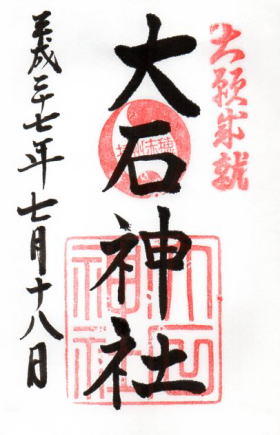 大願成就
大石神社
平成二十七年七月十八日
大石
神社